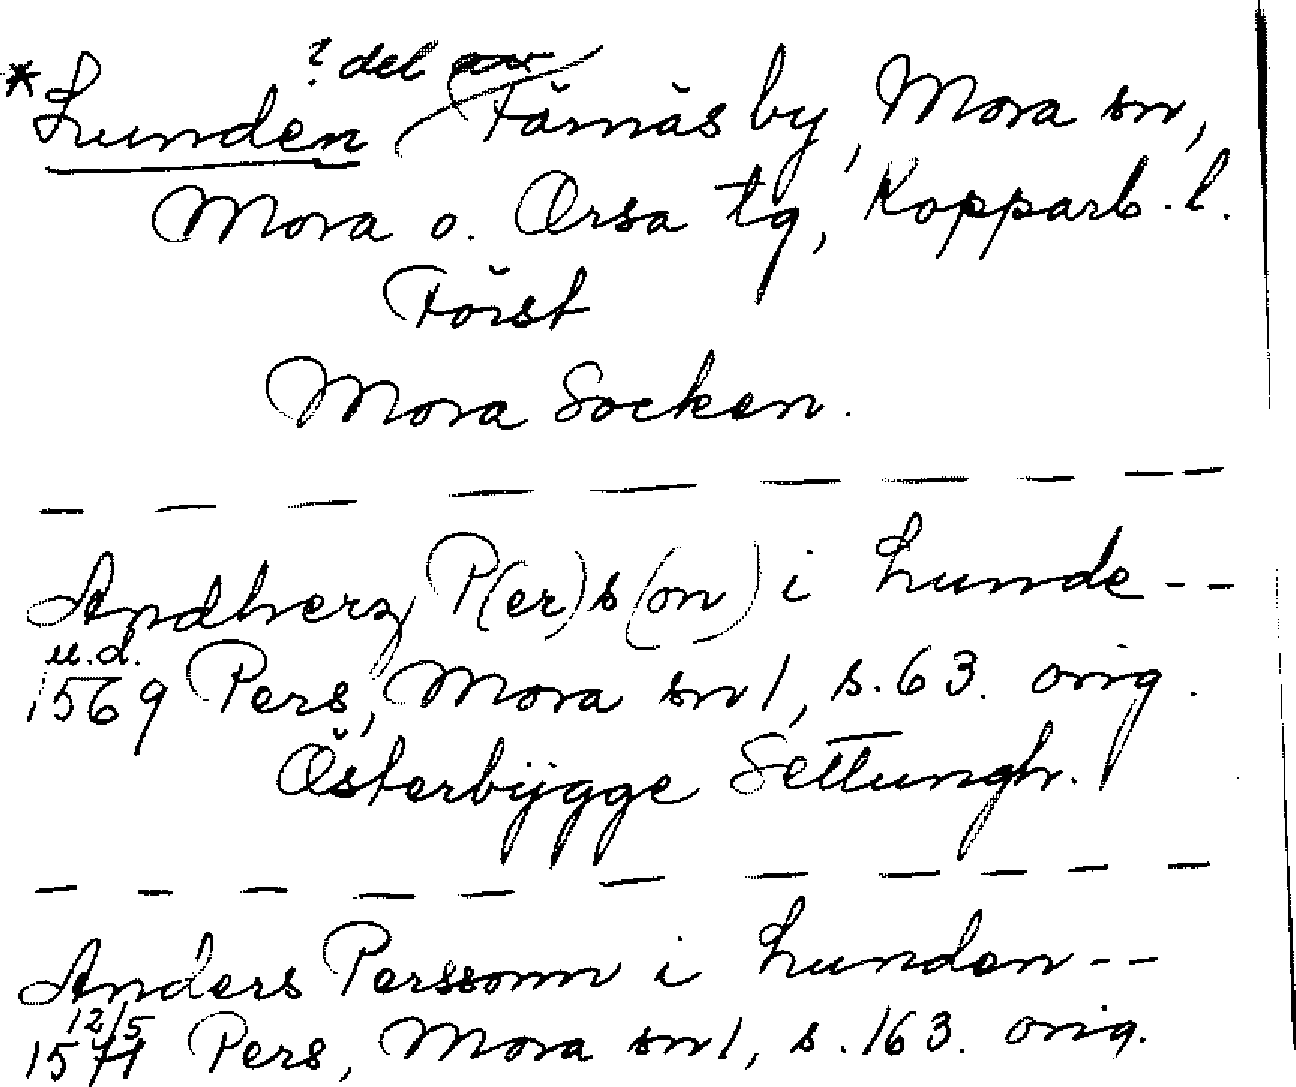 ? del av
*Lunden, Färnäs by, Mora sn,
Mora o. Orsa tg, Kopparb. l.
Först
Mora Socken.
Andherz P(er)s(on) i Lunde--
u.d.
1569 Pers, Mora sn 1, s. 63. orig.
Österbÿgge Settungh.
Anders Perssonn i Lunden--
12/5
1571 Pers, Mora sn 1, s. 163. orig.